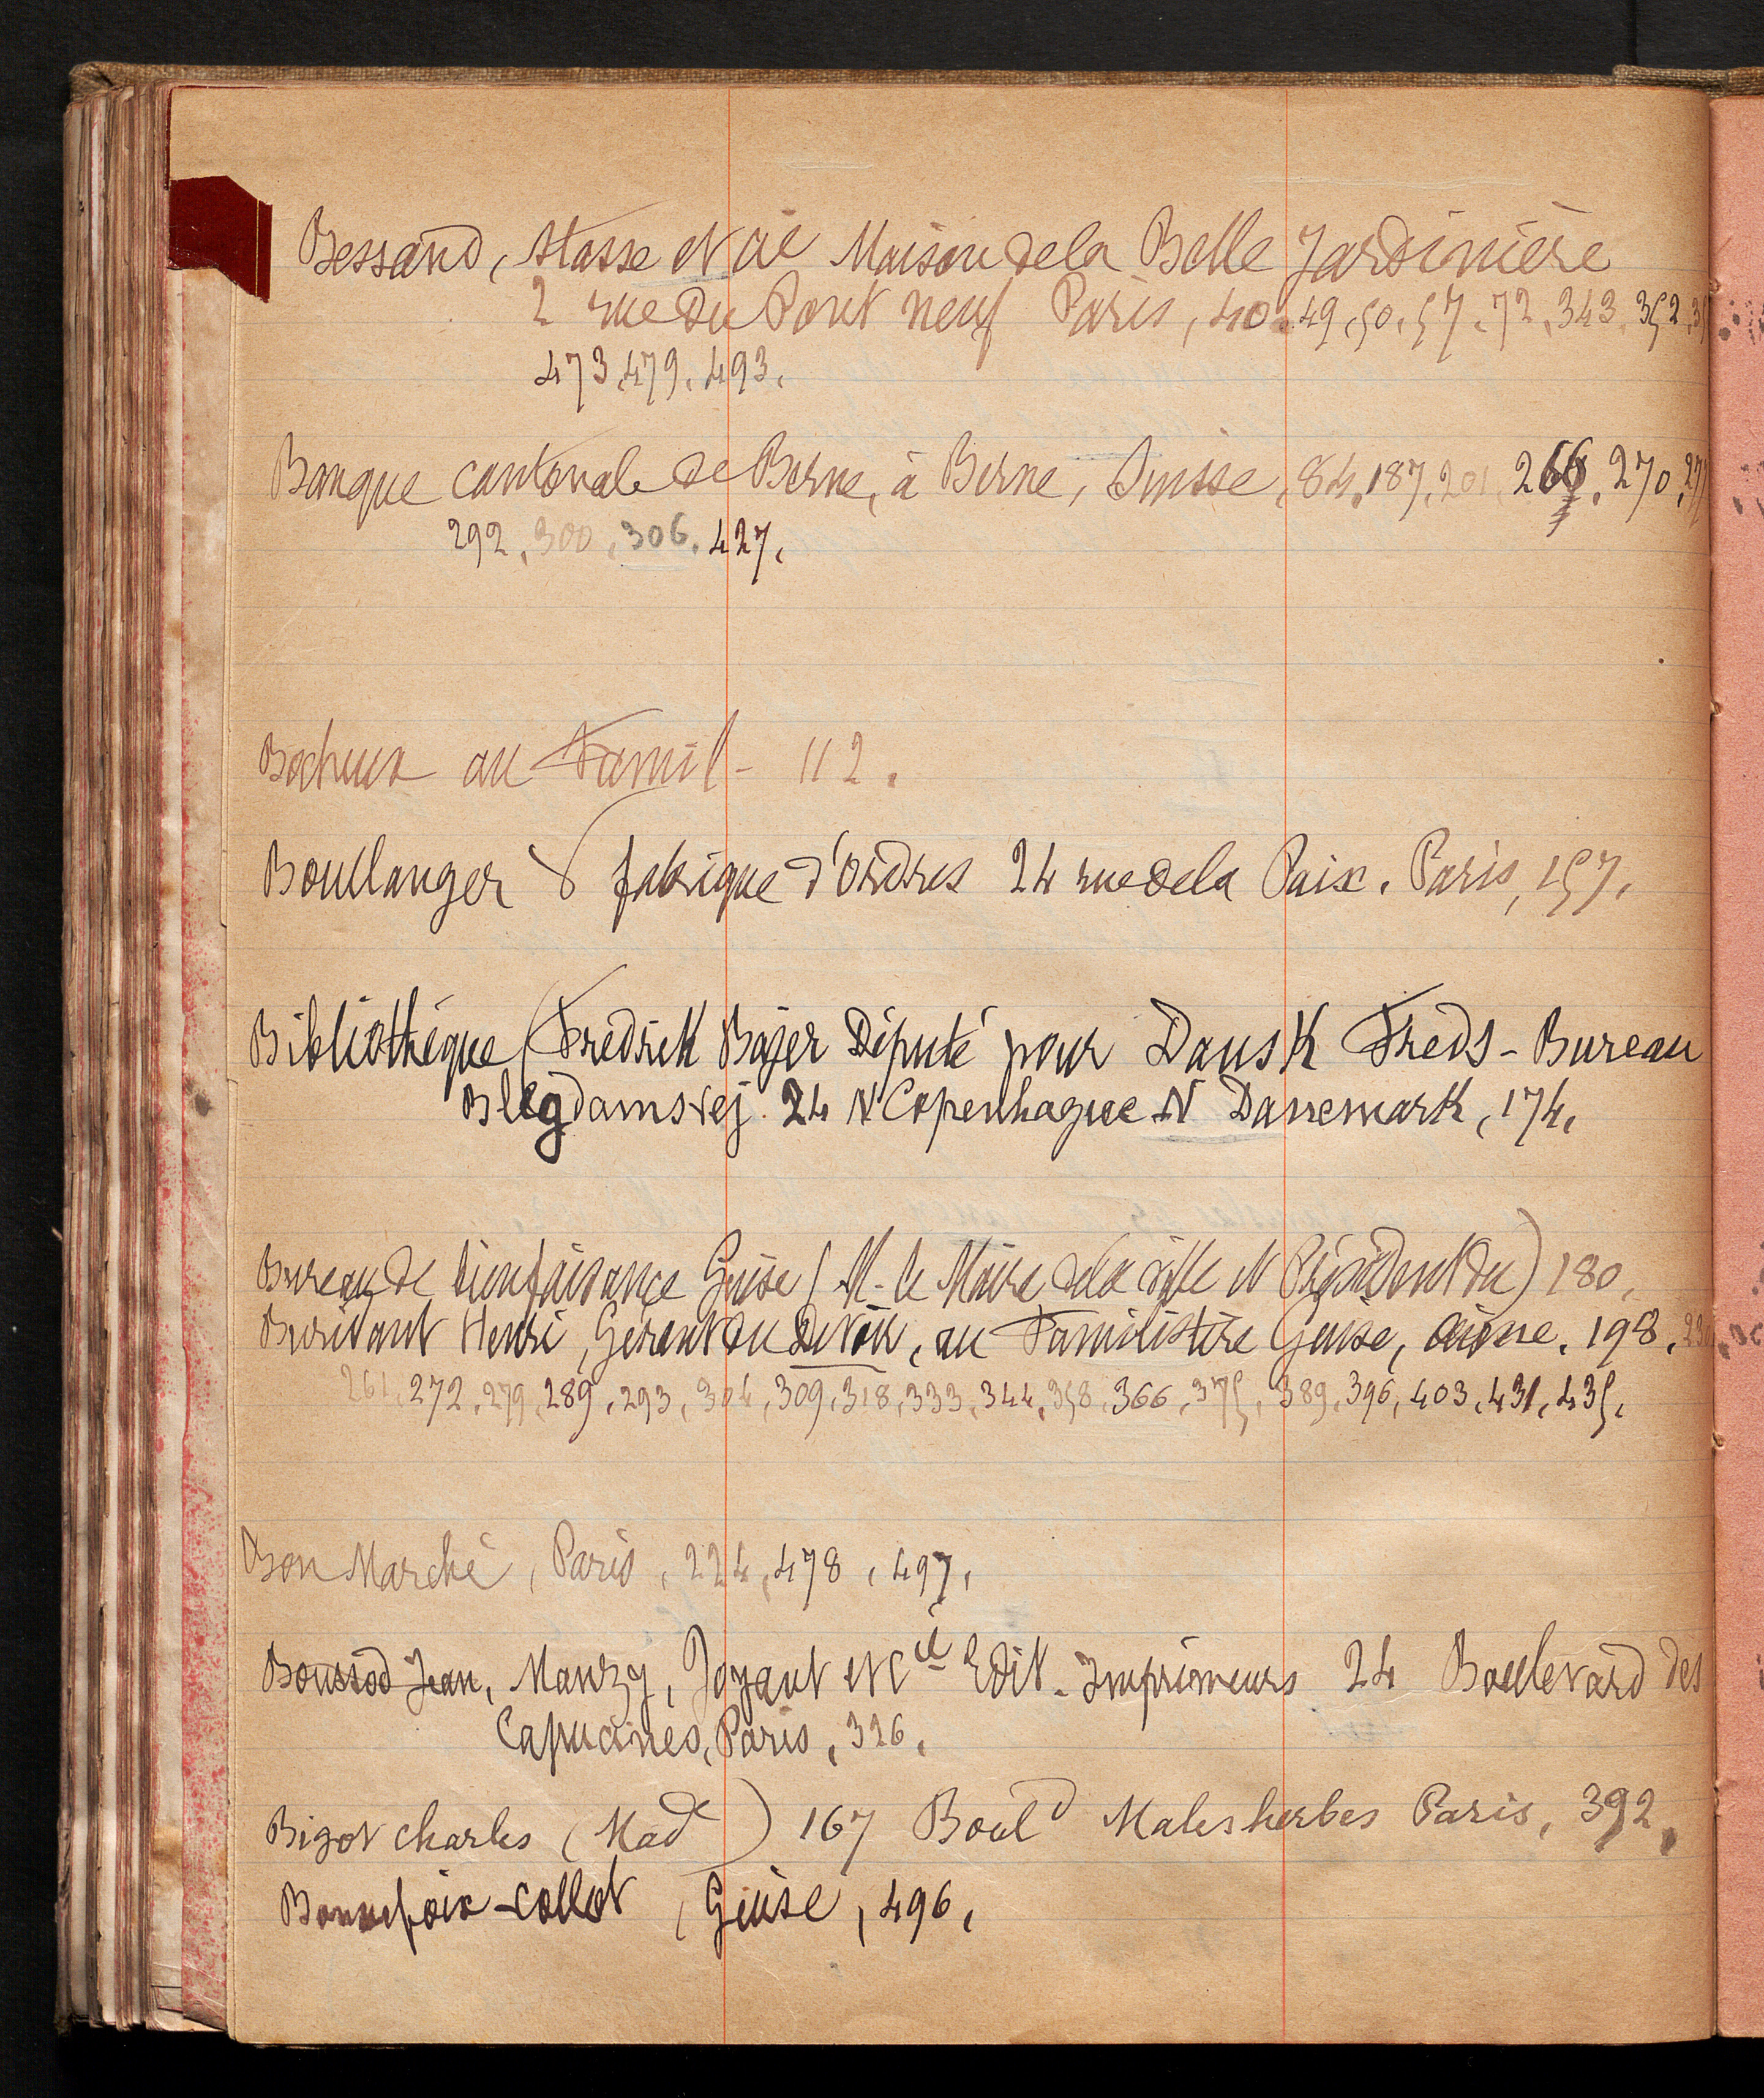 Bessand, Stasse et Cie Maison de la Belle Jardinière
2 rue du Pont neuf Paris, 40, 49, 50, 57, 72, 343, 352,
473, 479, 493,
Banque cantonale de Berne, à Berne, Suisse, 84, 187, 201, 266, 270,
292, 300, 306, 427,
au Famil- 112,
Boullanger fabrique d'ordres 24 rue de la Paix. Paris, 157,
Bibliothèque (Fredrik Bajer Député pour Dansk Freds-Bureau
Blegdamsvej 24 N Copenhague N Danemark, 174,
Bureau de bienfaisance Guise (M. le Maire de la ville et Président du) 180,
Buridant Henri, Gérant du Devoir, au Familistère Guise, Aisne, 198,
261, 272, 279, 289, 293, 304, 309, 318, 333, 344, 358, 366, 375, 389, 396, 403, 431, 435,
Bon Marché, Paris, 224, 478, 497,
Boussod Jean, Manzy, Joyant et Cie Edit-Imprimeurs 24 Boulevard des
Capucines, Paris, 326,
Bigot Charles (Made) 167 Bould Malesherbes Paris, 392,
Bonnefoix-Collet, Guise, 496,